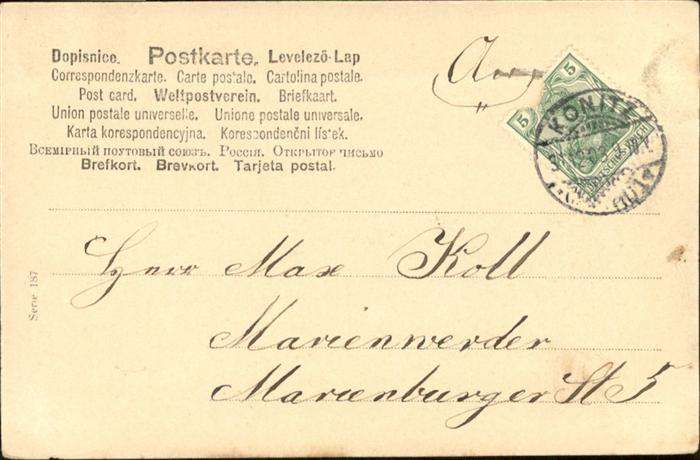 Dopisnice. Postkarte. Levelező-Lap
Correspondenzkarte. Carte postale. Cartolina postale.
Post card. Weltpostverein. Briefkaart.
Union postale universelle. Unione postale universale.
Karta korespondencyjna. Korespondenční lístek.
Всемірный поутовый союзъ. Россія. Открытое чисьмо
Brefkort. Brevkort. Tarjeta postal.
5
5
KONITZ
Herr Max Koll
Marienwerder
Marienburger St 5
Serie 187